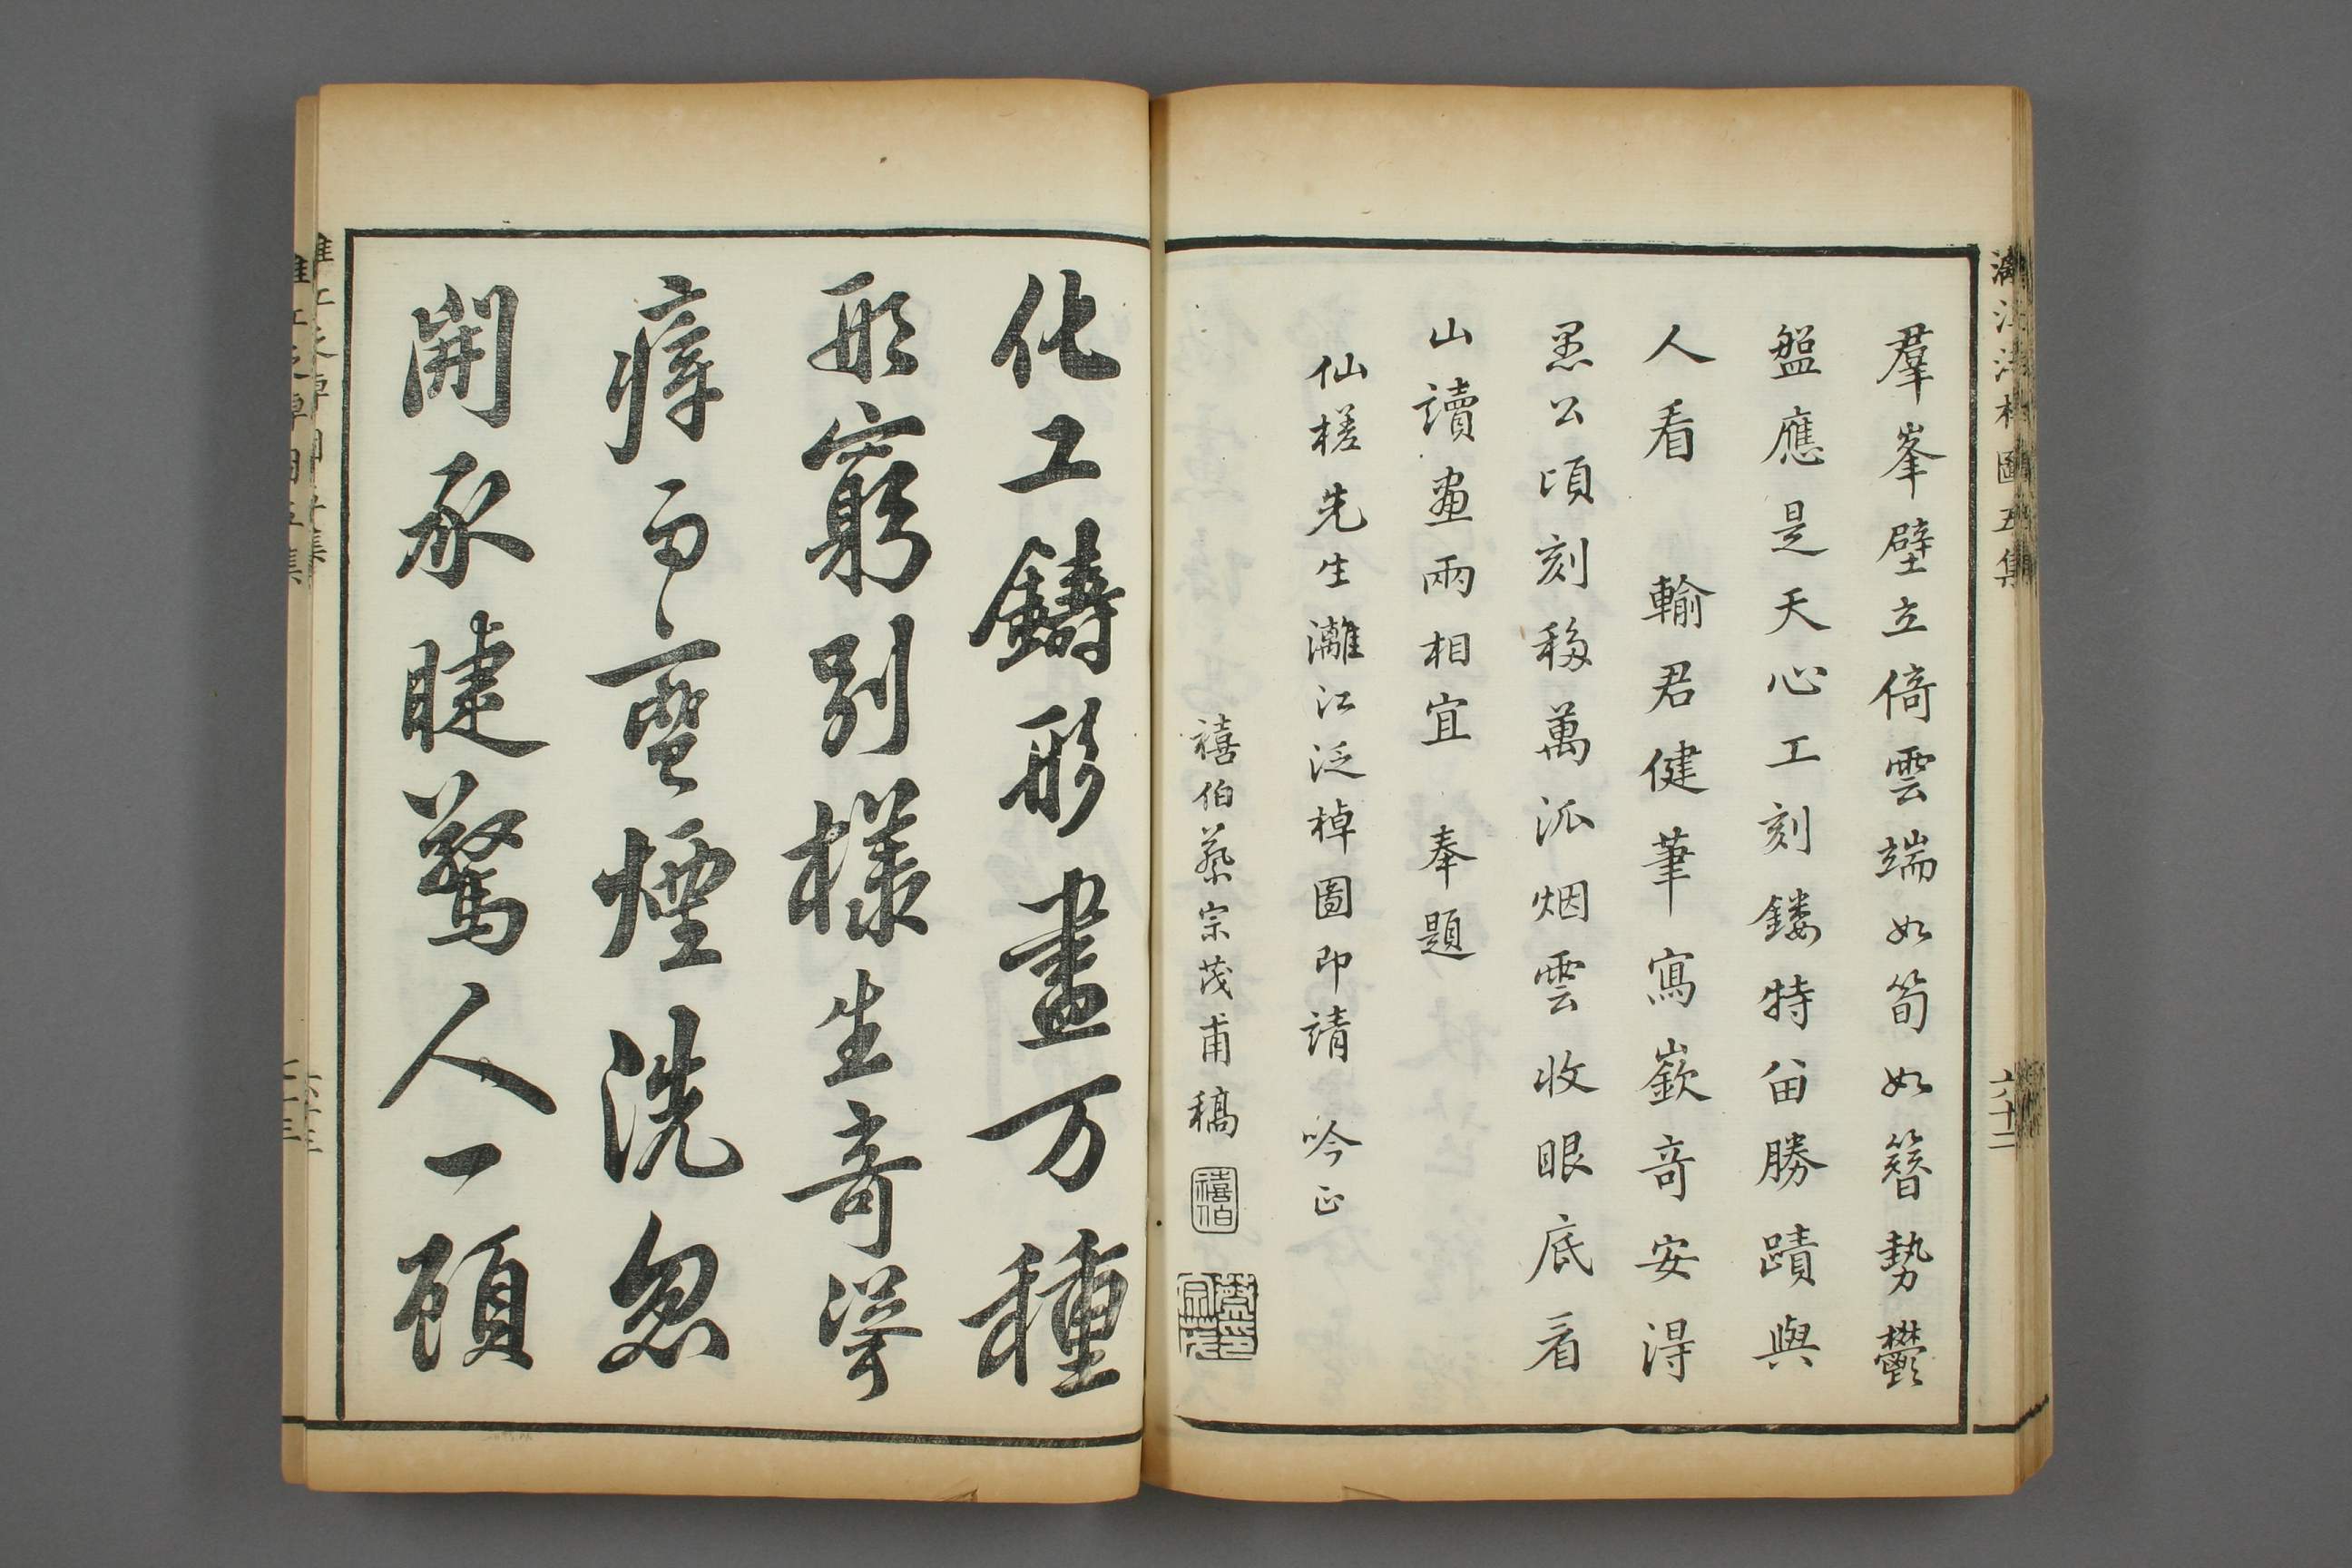 羣峯壁立倚雲端如筍如簪勢鬱
盤應是天心工刻鏤特畱勝蹟與
人看　輸君健筆寫嶔奇安得
愚公頃刻移萬派烟雲收眼底看
山讀畫兩相宜　奉題
仙槎先生灕江泛棹圖即請　吟正
禧伯蔡宗茂甫稿
禧伯
蔡宗茂印
灕江泛棹圖五集
六十二
化工鑄形畫万種
形窮別樣生奇
瘴雨蠻煙洗忽
開承睫驚人一頭